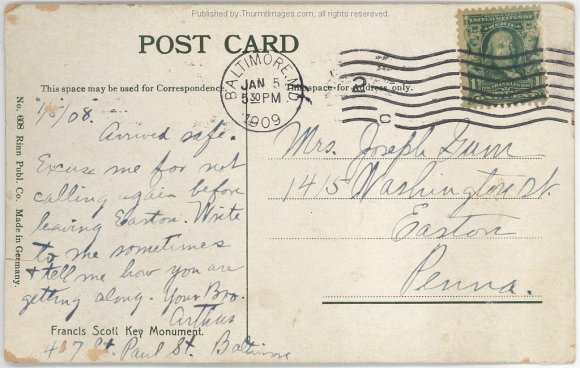 Published by ThurmtImages.com, all rights reserved.
POST CARD
This space may be used for Correspondence.
This space for Address only.
BALTIMORE, MD.
JAN 5
5 30 PM
1909
2
C
1/5/08.
Arrived safe.
Excuse me for not
calling again before
leaving Easton. Write
to me sometimes
& tell me how you are
getting along. Your Bro.
Arthur
407 St. Paul St. Baltimore
Mrs. Joseph Gum
1415 Washington St.
Easton
Penna.
Francis Scott Key Monument.
No. 608 Rinn Publ. Co. Made in Germany.